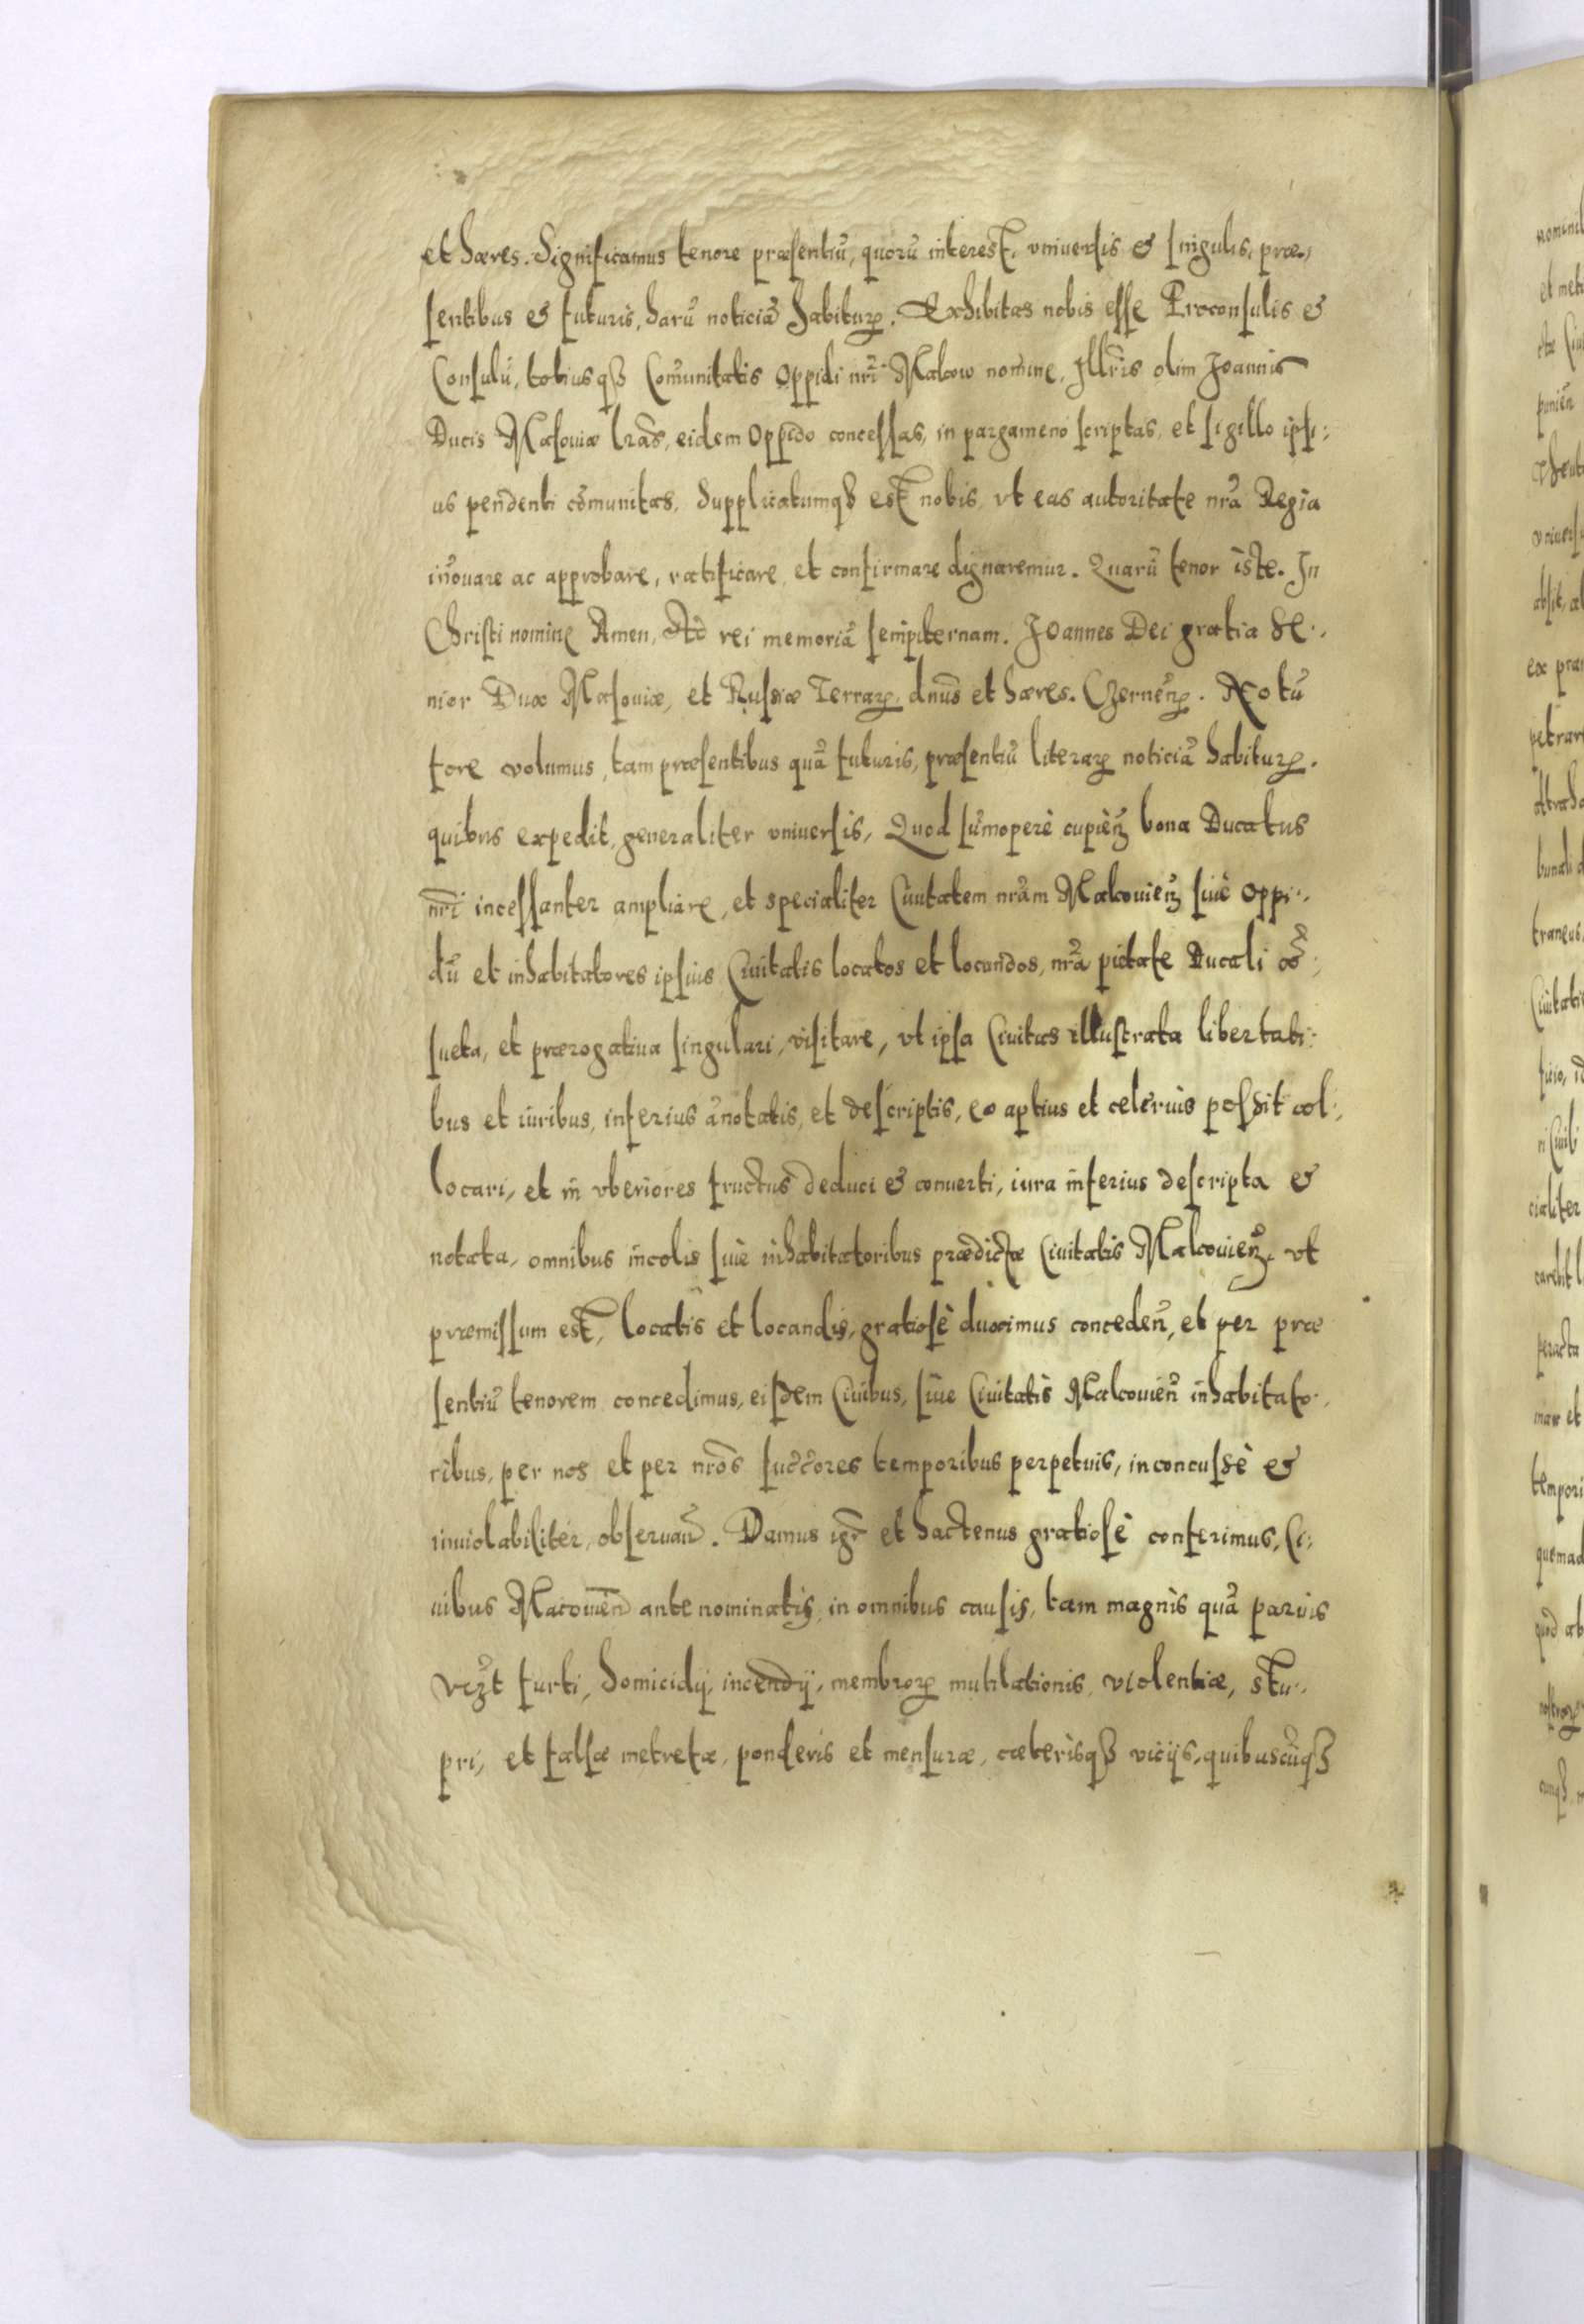 et hæres. Significamus tenore præsentiũ, quorũ interest, vniuersis & singulis, præ,,
sentibus & futuris, harũ noticiã habiturꝝ. Exhibitas nobis esse Proconsulis &
Consulũ, totiusqꝫ Com̃unitatis Oppidi nr̃i Makow nomine, Illr̃is olim Joannis
Ducis Masouiæ lrãs, eidem Oppido concessas, in pargameno scriptas, et sigillo ipsi:
us pendenti cõmunitas, Supplicatumqꝫ est nobis, vt eas autoritate nrã Regia
iñouare ac approbare, ratificare et confirmare dignaremur. Quarũ tenor iste. In
Christi nomine Amen, Ad rei memoriã sempiternam. Joannes Dei gratia Se,,
nior Dux Masouiæ, et Russiæ Terrarꝝ, dnũs et hæres. Czerneñꝝ. Notũ
fore volumus, tam præsentibus quã futuris, præsentiũ literarꝝ noticiã habiturꝝ.
quibus expedit, generaliter vniuersis, Quod sũmoperè cupieñ bona Ducatus
nr̃i incessanter ampliare, et specialiter Ciuitatem nrãm Makouieñ siuè Oppi,,
dũ et inhabitatores ipsius Ciuitatis locatos et locandos, nrã pietate Ducali cõ:
sueta, et prærogatiua singulari, visitare, vt ipsa Ciuitas illustrata libertati:
bus et iuribus, inferius ãnotatis, et descriptis, eo aptius et celerius possit col:
locari, et in vberiores fructus deduci & conuerti, iura inferius descripta &
notata, omnibus incolis siuè inhabitatoribus prædictæ Ciuitatis Makouieñ, vt
præmissum est, locatis et locandis, gratiosè duximus concedeñ, et per præ
sentiũ tenorem concedimus, eisdem Ciuibus, siue Ciuitatis Makouieñ inhabitato,,
ribus, per nos et per nrõs succ̃ores temporibus perpetuis, inconcussè &
inuiolabiliter, obseruañ. Damus igr̃ et hactenus gratiosè conferimus, Ci:
uibus Macouieñ antenominatis, in omnibus causis, tam magnis quã paruis
vcz̃t furti, homicidij, incendij, membrorꝝ mutilationis, violentiæ, stu,,
pri, et falsæ metretæ, ponderis et mensuræ, cæterisqꝫ vicijs, quibuscũqꝫ